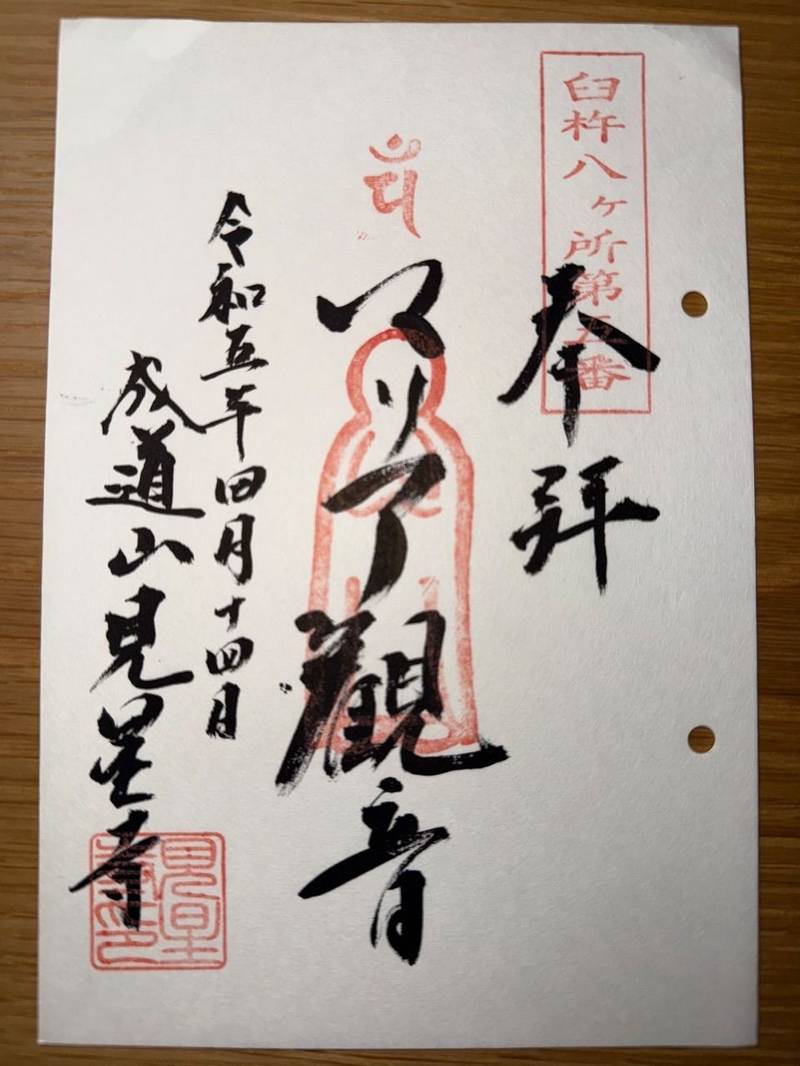 臼杵八ヶ所第五番
奉拜
マリア觀音
令和五年四月十四日
成道山見星寺
見星
寺印